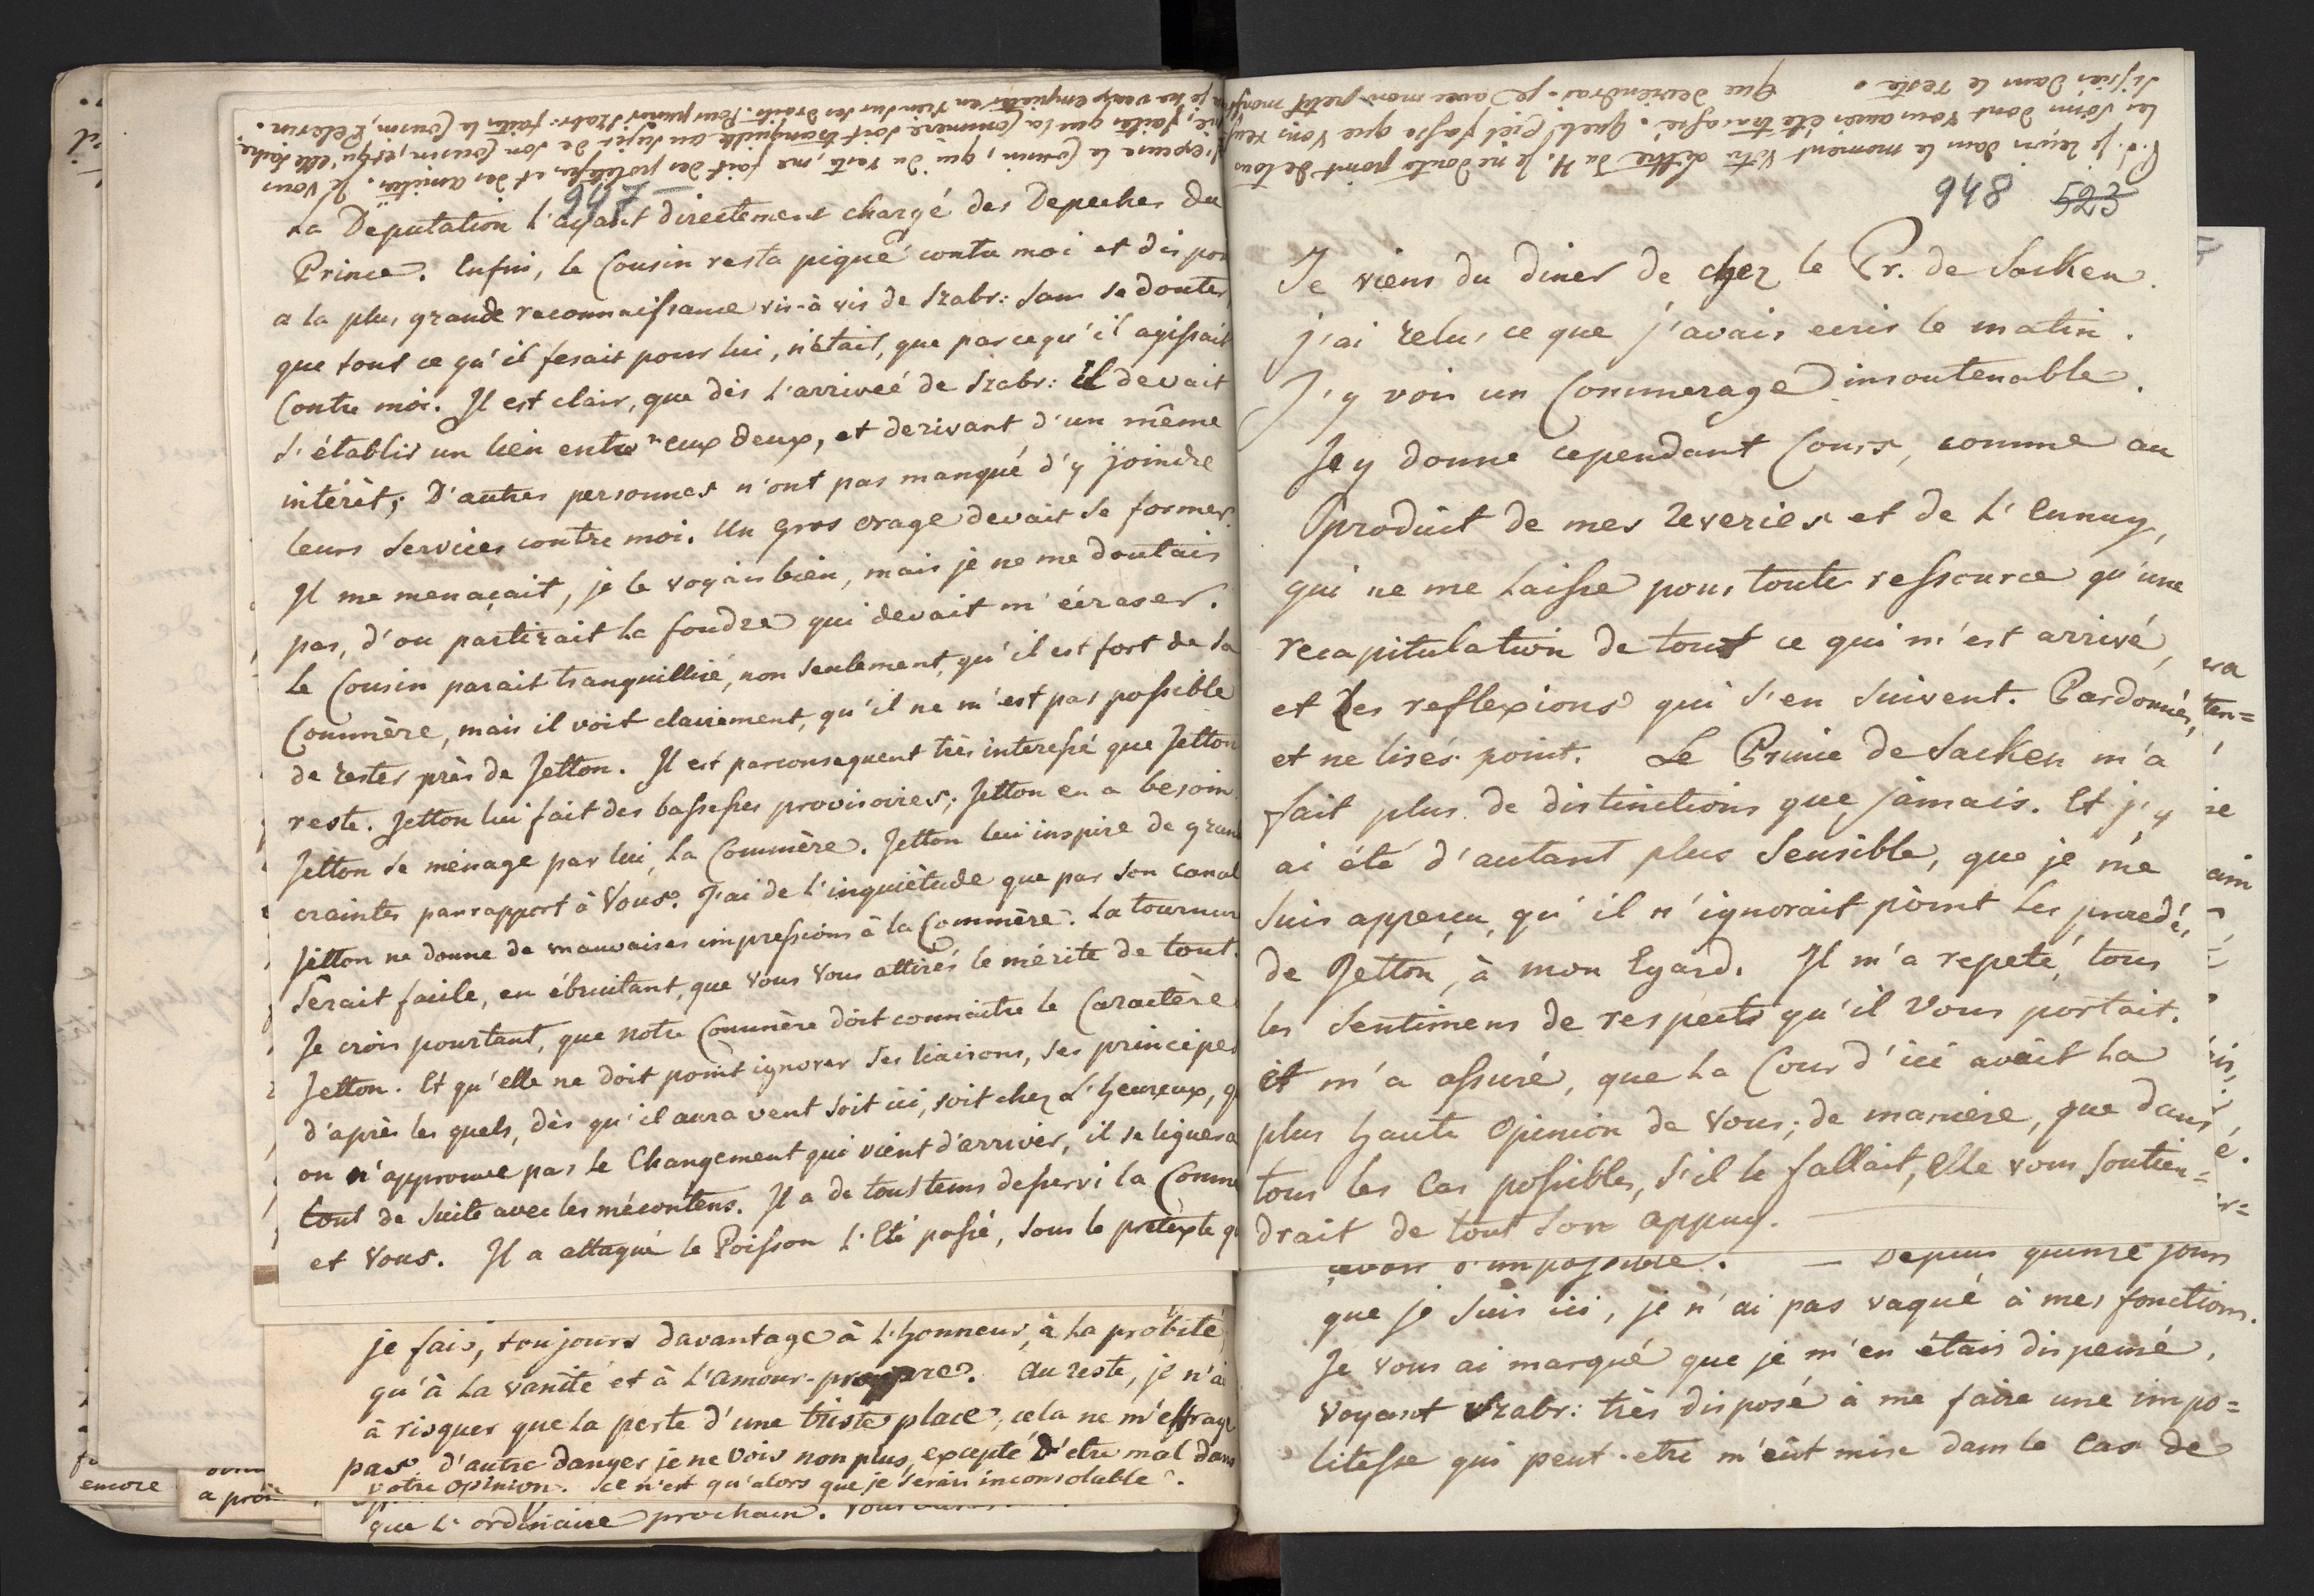 947
La Députation l'ayant directement chargé des Depeches du
Prince. Enfin, le Cousin resta piqué contre moi et dispos
a la plus grande reconnaissance vis-à vis de Szabr: sans se douter
que tout ce qu'il fesait pour lui, n'était, que parcequ'il agissait
Contre moi. Il est clair, que dès l'arriveé de Szabr: il devait
s'établir un lien entre eux deux, et derivant d'un même
intérèt; D'autres personnes n'ont pas manqué d'y joindre
leurs services contre moi. Un gros orage devait se former.
Il me menaçait, je le voyais bien, mais je ne me doutais
pas, d'ou partirait la foudre qui devait m'écraser.
Le Cousin parait tranquillisé, non seulement, qu'il est fort de sa
Commère, mais il voit clairement, qu'il ne m'est pas possible
de rester près de Jetton. Il est parconsequent très interessé que Jetton
reste. Jetton lui fait des bassesses provisoires; Jetton en a besoin.
Jetton se ménage par lui, la Commère. Jetton lui inspire de gran
craintes par rapport à Vous. J'ai de l'inquiétude que par son canal
Jetton ne donne de mauvaises impressions à la Commère. La tournur
serait facile, en ébruitant, que vous vous attirés le mérite de tout.
Je crois pourtant, que notre Commère doit connaitre le Caractère
Jetton. Et qu'elle ne doit point ignorer ses liaisons, ses principes
d'après les quels, dès qu'il aura vent soit ici, soit chez L'heureux, q
on n'approuve pas le Changement qui vient d'arriver, il se liguera
tout de suite avec les mécontens. Il a de tout tems desservi la Comm
et Vous. Il a attaqué le Poisson l'Eté passé, sous le pretexte q
je fais, toujours davantage à l'honneur, à la probité
qu'à la vanité et à l'amour-propre. Au reste, je n'ai
à risquer que la perte d'une triste place, cela ne m'effraye
pas d'autre danger je ne vois non plus, excepté d'etre mal dans
votre opinion. Ce n'est qu'alors que je serais inconsolable.
que l'ordinaire prochain.
encore
P.S. Je reçois dans le moment votre Lettre du 4. Je ne doute point de tous
les soins dont vous avés été tracassé. Quel Ciel fasse que vous
sijiés dans le reste. Que deviendrai-je avec mon petit
948 523
Je viens du diner de chez le Pr. de Sacken.
j'ai relu, ce que j'avais ecris le matin.
J'y vois un Commerage insoutenable.
Je y donne cependant Cours, comme au
produit de mes reveries et de l'Ennuy,
qui ne me laisse pour toute ressource qu'une
recapitulation de tout ce qui m'est arrivé,
et des reflexions qui s'en suivent. Pardonnés,
et ne lisés point. Le Prince de Sacken m'a
fait plus de distinctions que jamais. Et j'y
ai été d'autant plus sensible, que je me
suis apperçu, qu'il n'ignorait point les procedé,
de Jetton, à mon Egard. Il m'a repeté, tous
les sentimens de respects qu'il vous portait.
et m'a assuré, que la Cour d'ici avait la
plus haute Opinion de Vous; de maniere, que dans
tous les Cas possibles, s'il le fallait, Elle vous soutien=
drait de tout son appuy.
— Depuis quinze jours
que je suis ici, je n'ai pas vaqué à mes fonctions.
Je vous ai marqué que je m'en étais dispensé,
voyant Szabr: très disposé à me faire une impo=
litesse qui peut-etre m'eût mis dans le Cas de